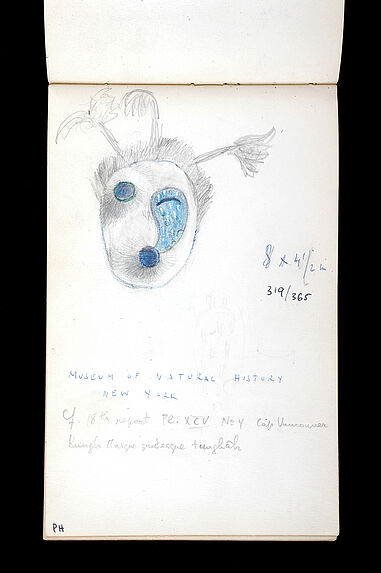 8 x 4 1/2 in
319/365
MUSEUM OF NATURAL HISTORY
NEW YORK
Cf. 18th report Pl. XCV No 4 Cap Vancouver
Masque grotesque tunghâk
PH